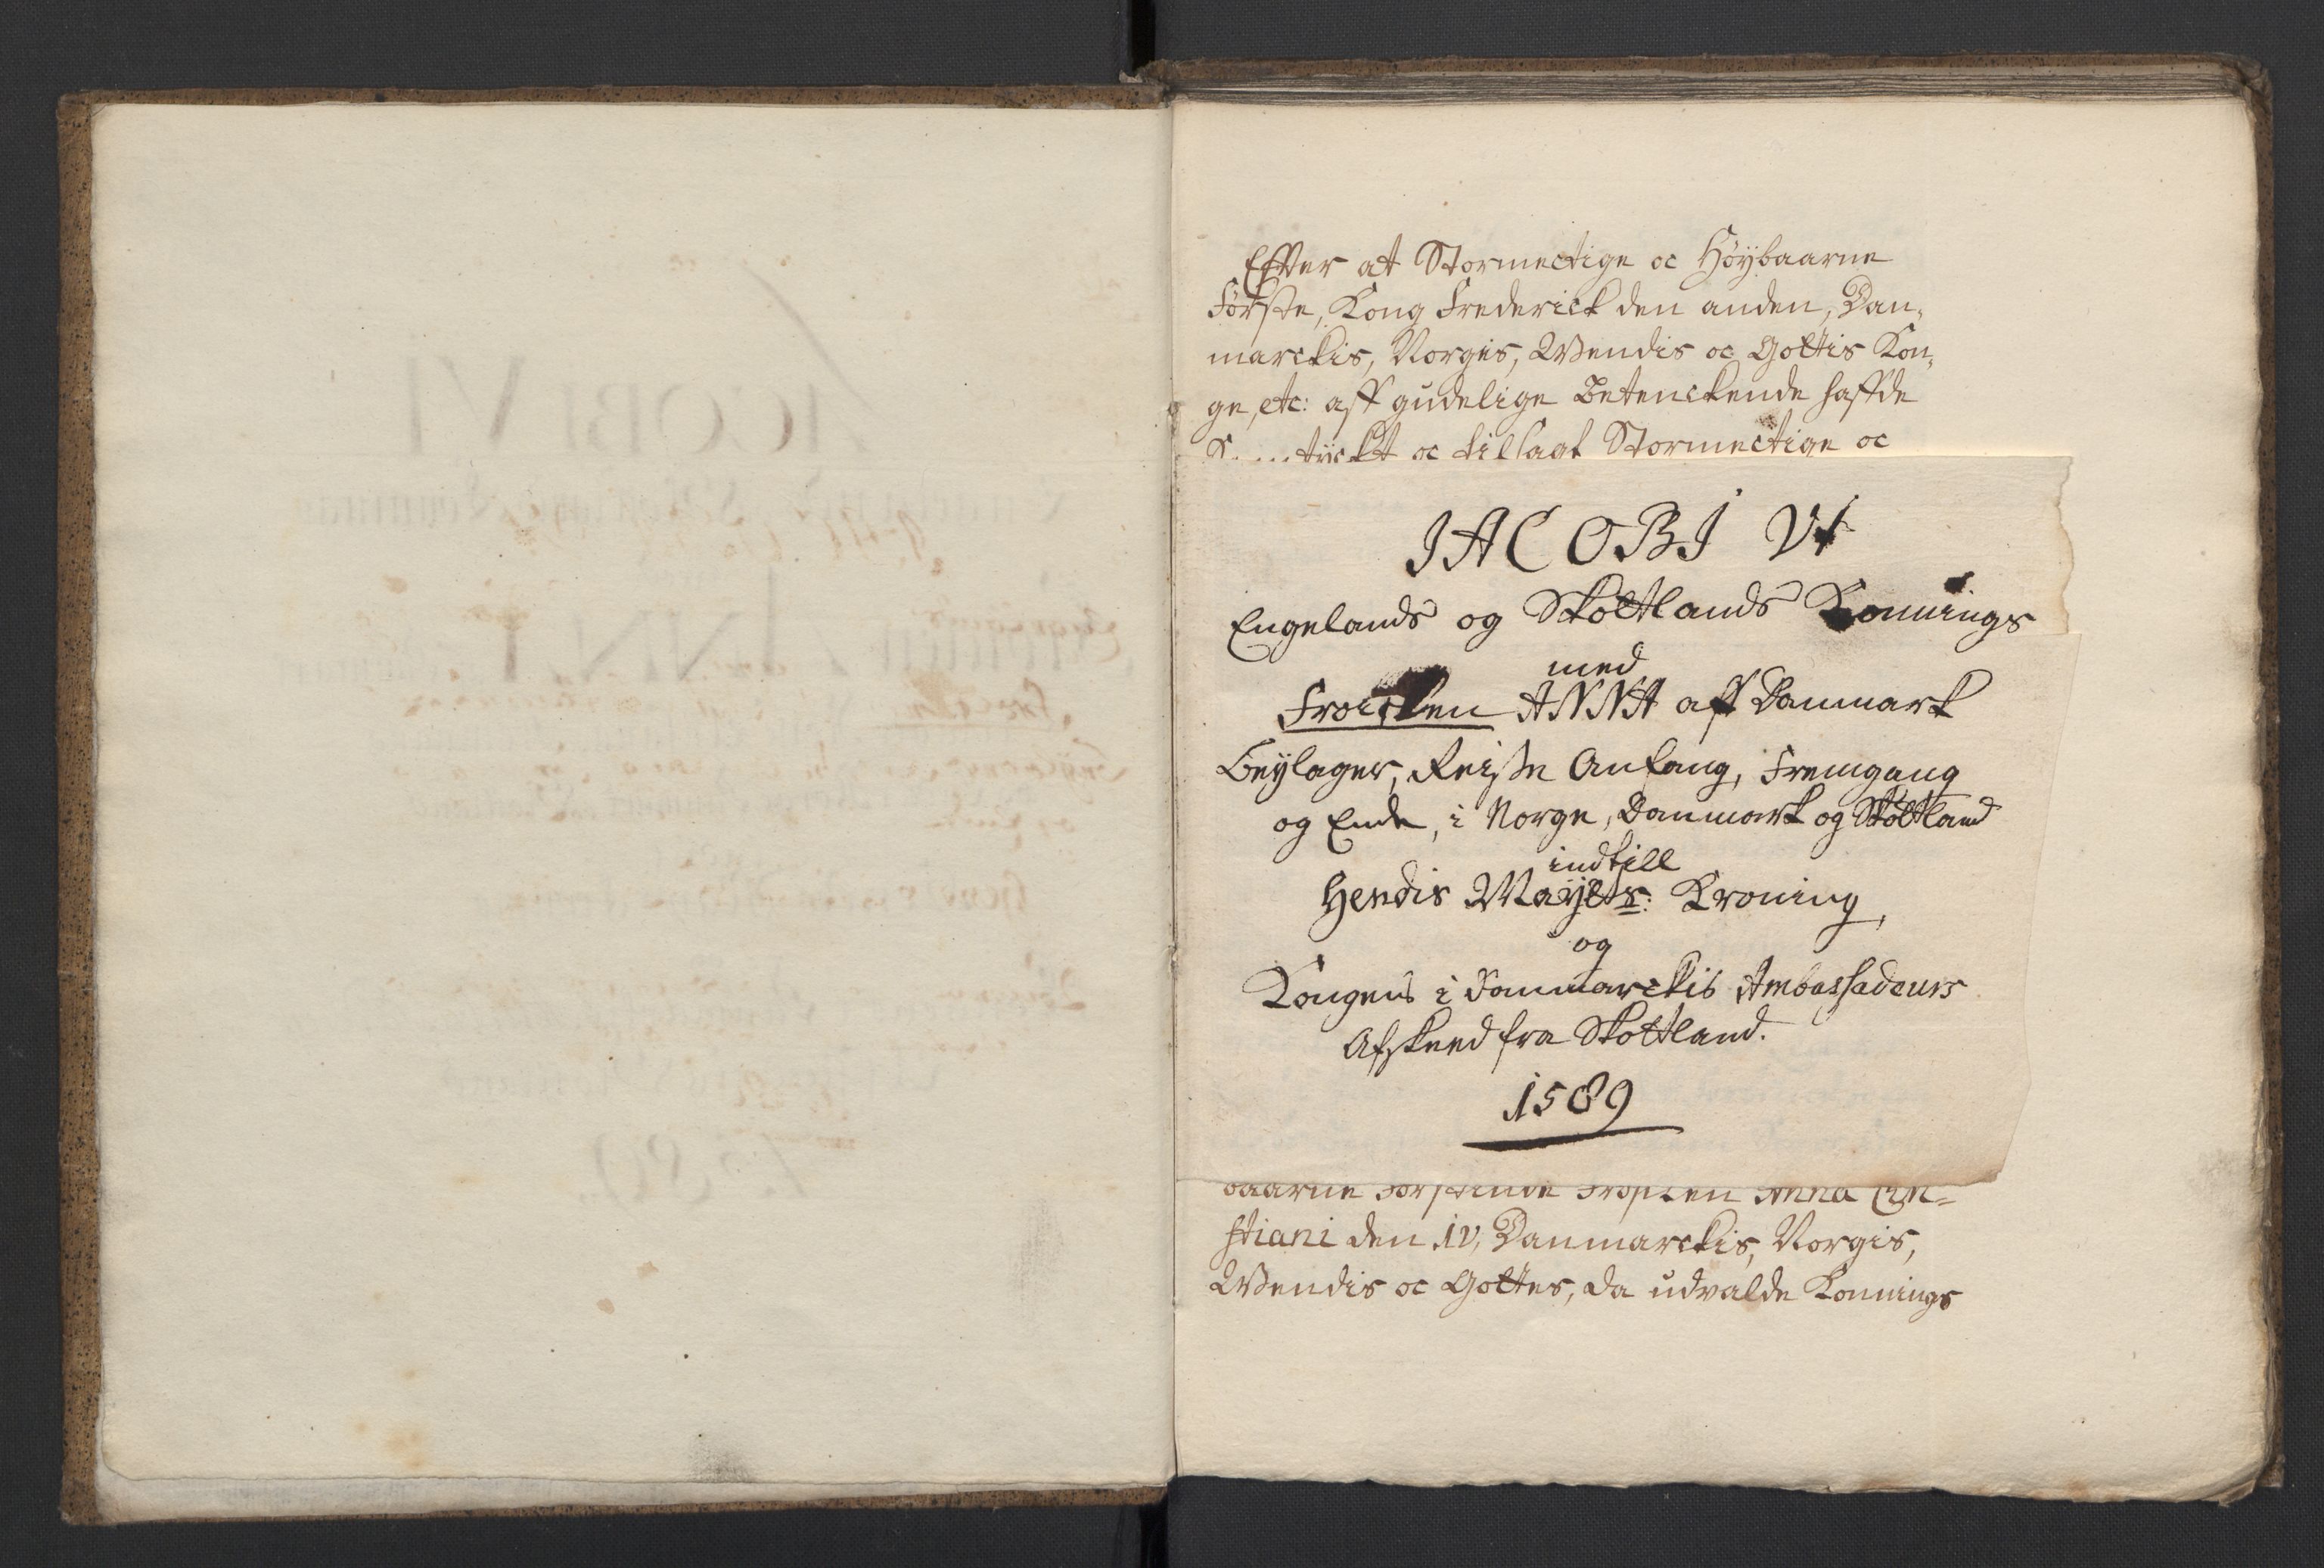 Effter at Stormectige oc Höÿbaarne
Förste, Kong Frederick den anden, Dan„
marckis, Norgis, Wendis oc Gottis Kon„
ge, etc: aff gudelige Betenckende haffde
oc tilsagt Stormectige oc
JACOBJ VI
Engelands og Skottlands Konnings
med
Froicken ANNA aff Danmark
Beylager, Reise Anfang, Fremgang
og Ende, i Norge, Danmark og Skottland
indtill
Hendis Mayts: Kroning,
og
Kongens i Danmarckis Ambassadeurs
Afskeed fra Skottland.
1589
baarne Förstinde Fröicken Anna Chri=
stiani den IV, Danmarckis, Norgis,
Wendis oc Gottes, da udvalde Konnings